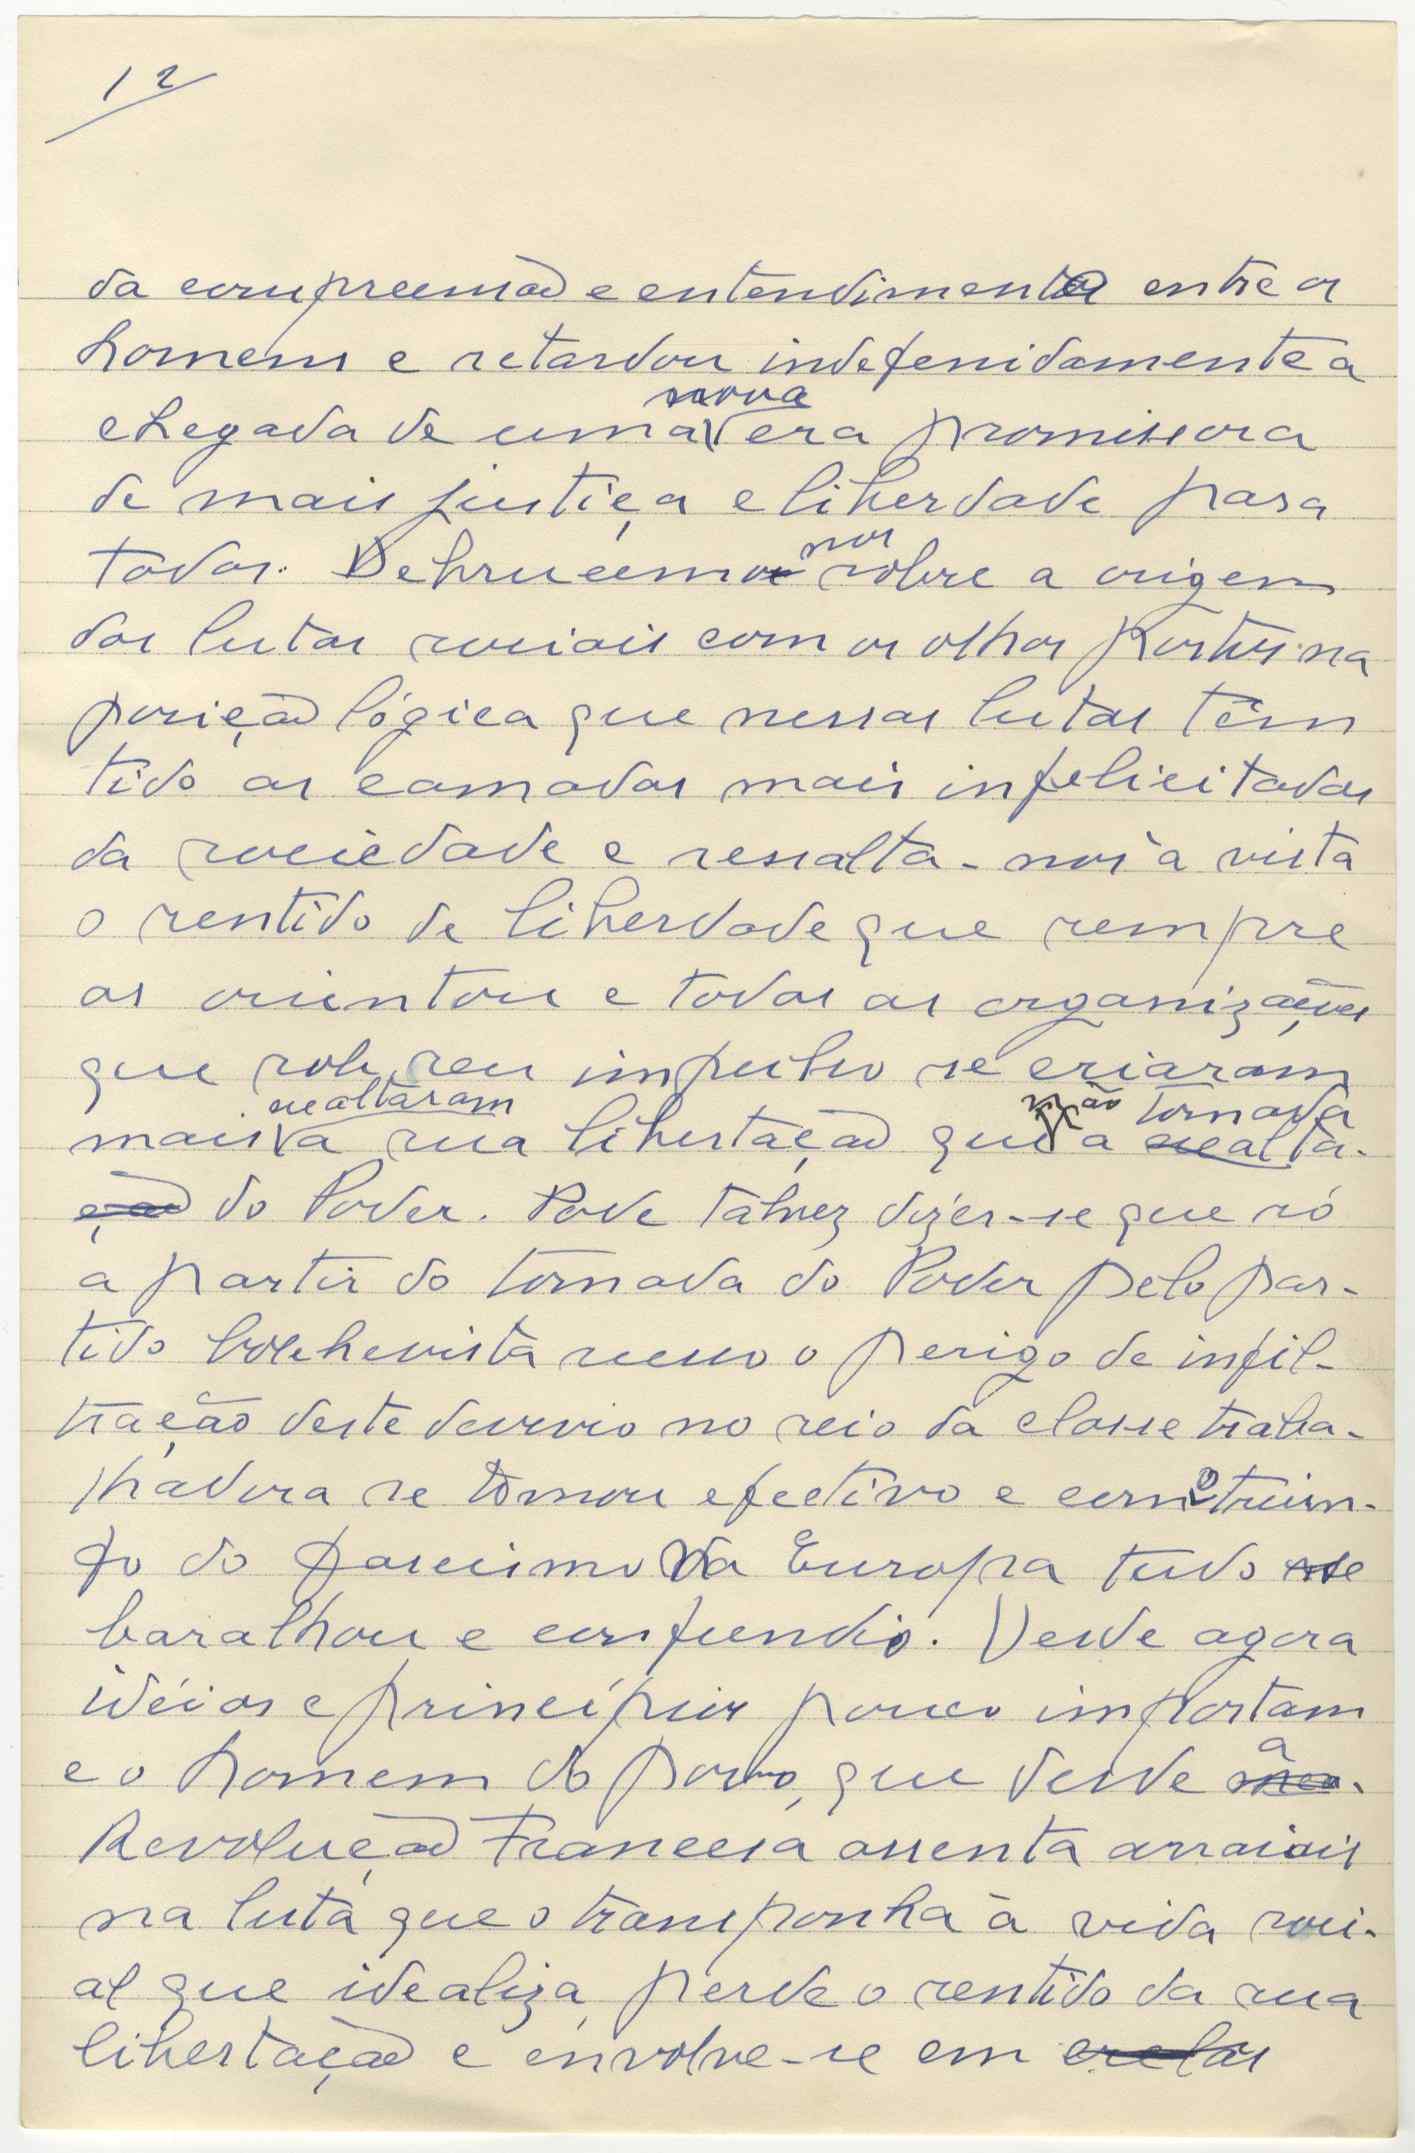 12
da compreensão e entendimento entre os
homens e retardou indefenidamente a
chegada de uma nova era promissora
de mais justiça e liberdade para
todos. Debrucemo nos sobre a origem
das lutas sociais com os olhos postos na
posição lógica que nessas lutas têm
tido as camadas mais infelicitadas
da sociedade e ressalta-nos à vista
o sentido de liberdade que sempre
as orientou e todas as organizações
que sob seu impulso se criaram
mais exaltaram a sua libertação que não a tomada exalta-
ção do Poder. Pode talvez dizer-se que só
a partir do tomada do Poder pelo par-
tido bolchevista russo o perigo de infil-
tração deste desvio no seio da classe traba-
lhadora se tomou efectivo e com o triun-
fo do fascismo na Europa tudo se
baralhou e confundio. Desde agora
idéias e princípios pouco importam
e o homem do povo, que desde a
Revolução Francesa assenta arraiais
na luta que o transponha à vida soci-
al que idealiza, perde o sentido da sua
libertação e envolve-se em